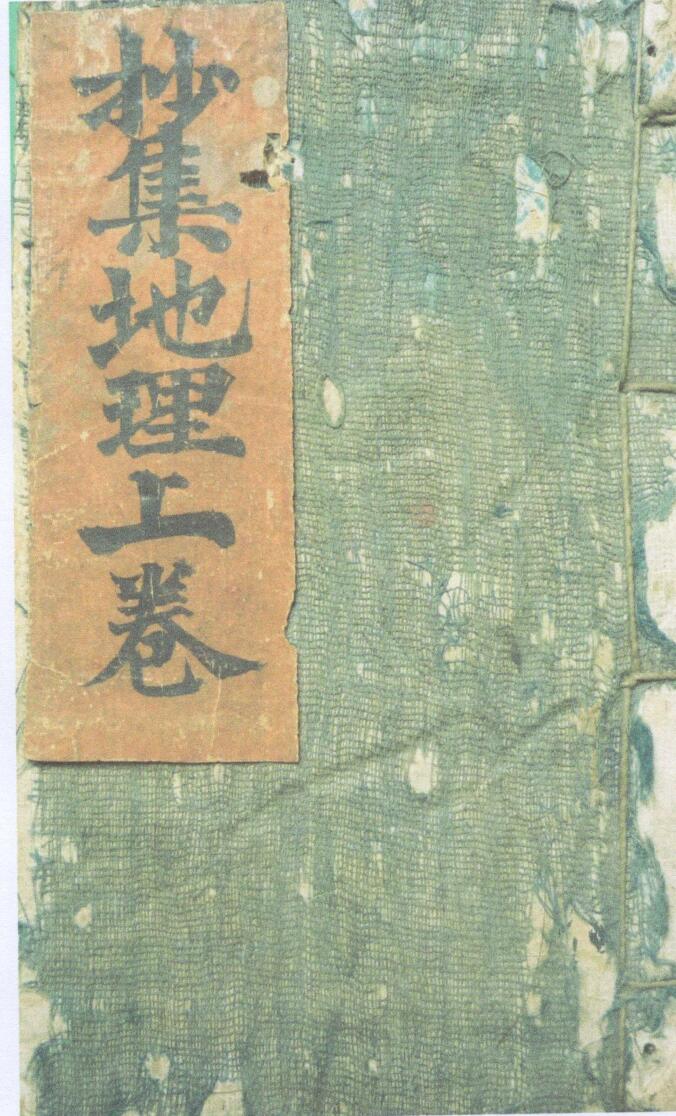 抄集地理上卷